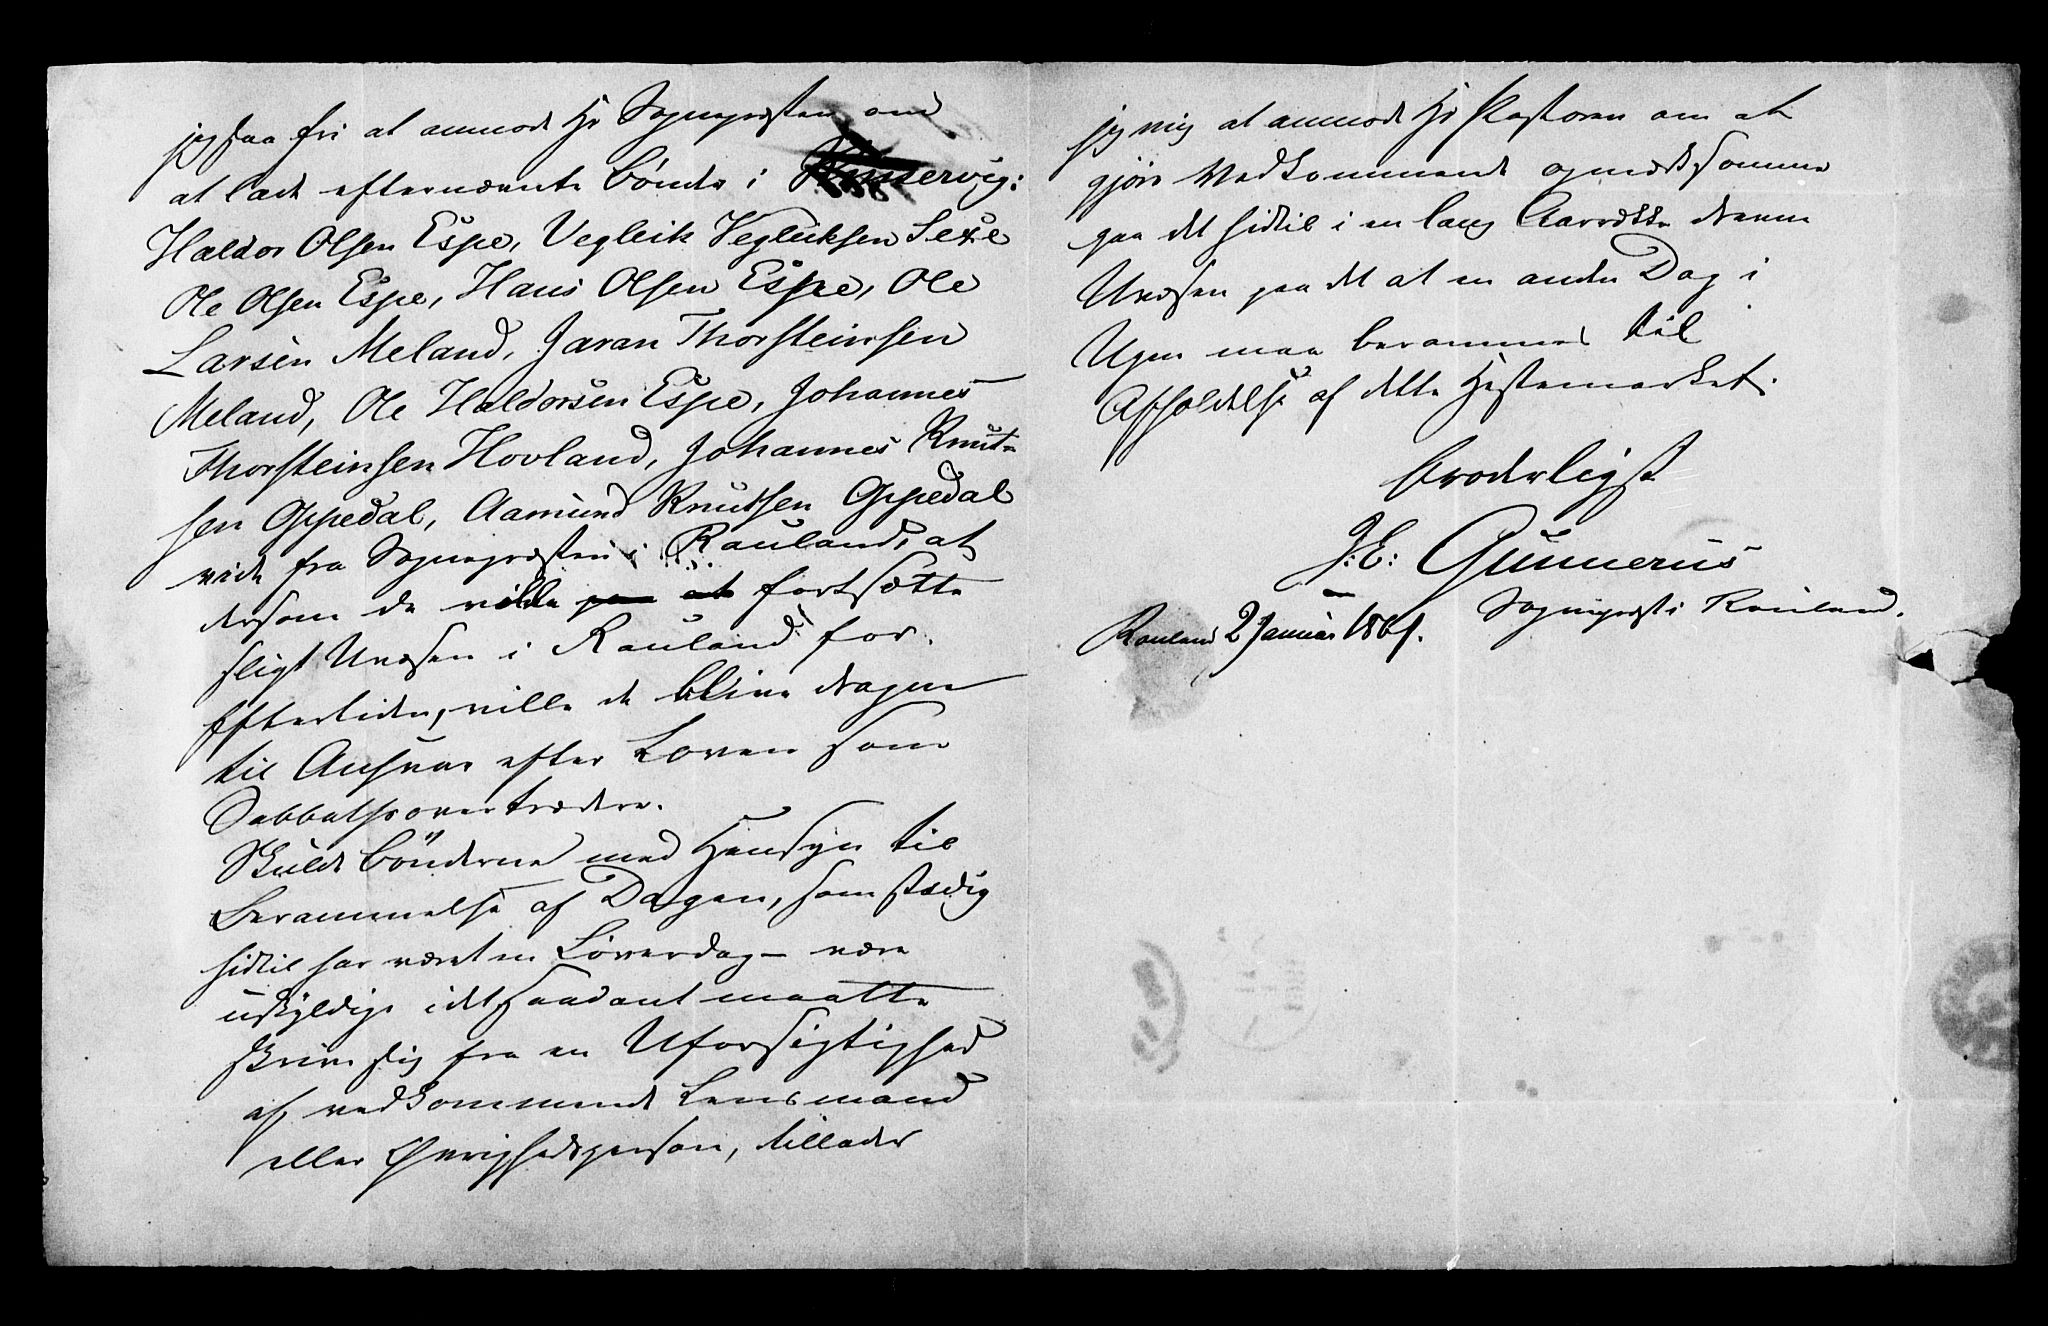 jeg saa fri at anmode Hr Sognepræsten om
at lade efternævnte Bønder i Kinservig:
Haldor Olsen Espe, Vegleik Vegleiksen Sexe
Ole Olsen Espe, Hans Olsen Espe, Ole
Larsen Meland, Jaran Thorsteinsen
Meland, Ole Haldorsen Espe, Johannes
Thorsteinsen Hovland, Johannes Knut-
sen Oppedal, Aamund Knutsen Oppedal
vide fra Sognepræsten i Rauland, at
dersom de ville paa at fortsætte
sligt Uvæsen i Rauland for
Eftertiden, ville de blive dragne
til Ansvar efter Loven som
Sabbathsovertrædere.
Skulde Bönderne med Hensyn til
Berammelse af Dagen, som stædig
hidtil har været en Löverdag - være
uskyldige i det saadant maatte
skrive sig fra en Uforsigtighed
af vedkommende Lensmand
eller Øvrighedsperson, tillader
jeg mig at anmode Hr Pastoren om at
gjöre Vedkommende opmærksomme
paa det hidtil i en lang Aarrække drevne
Uvæsen paa det at en anden Dag i
Ugen maa berammes til
Afholdelse af dette Hestemarked.
broderligst
J: E: Gunnerus
Sognepræst i Rauland.
Rauland 2 Januar 1861.